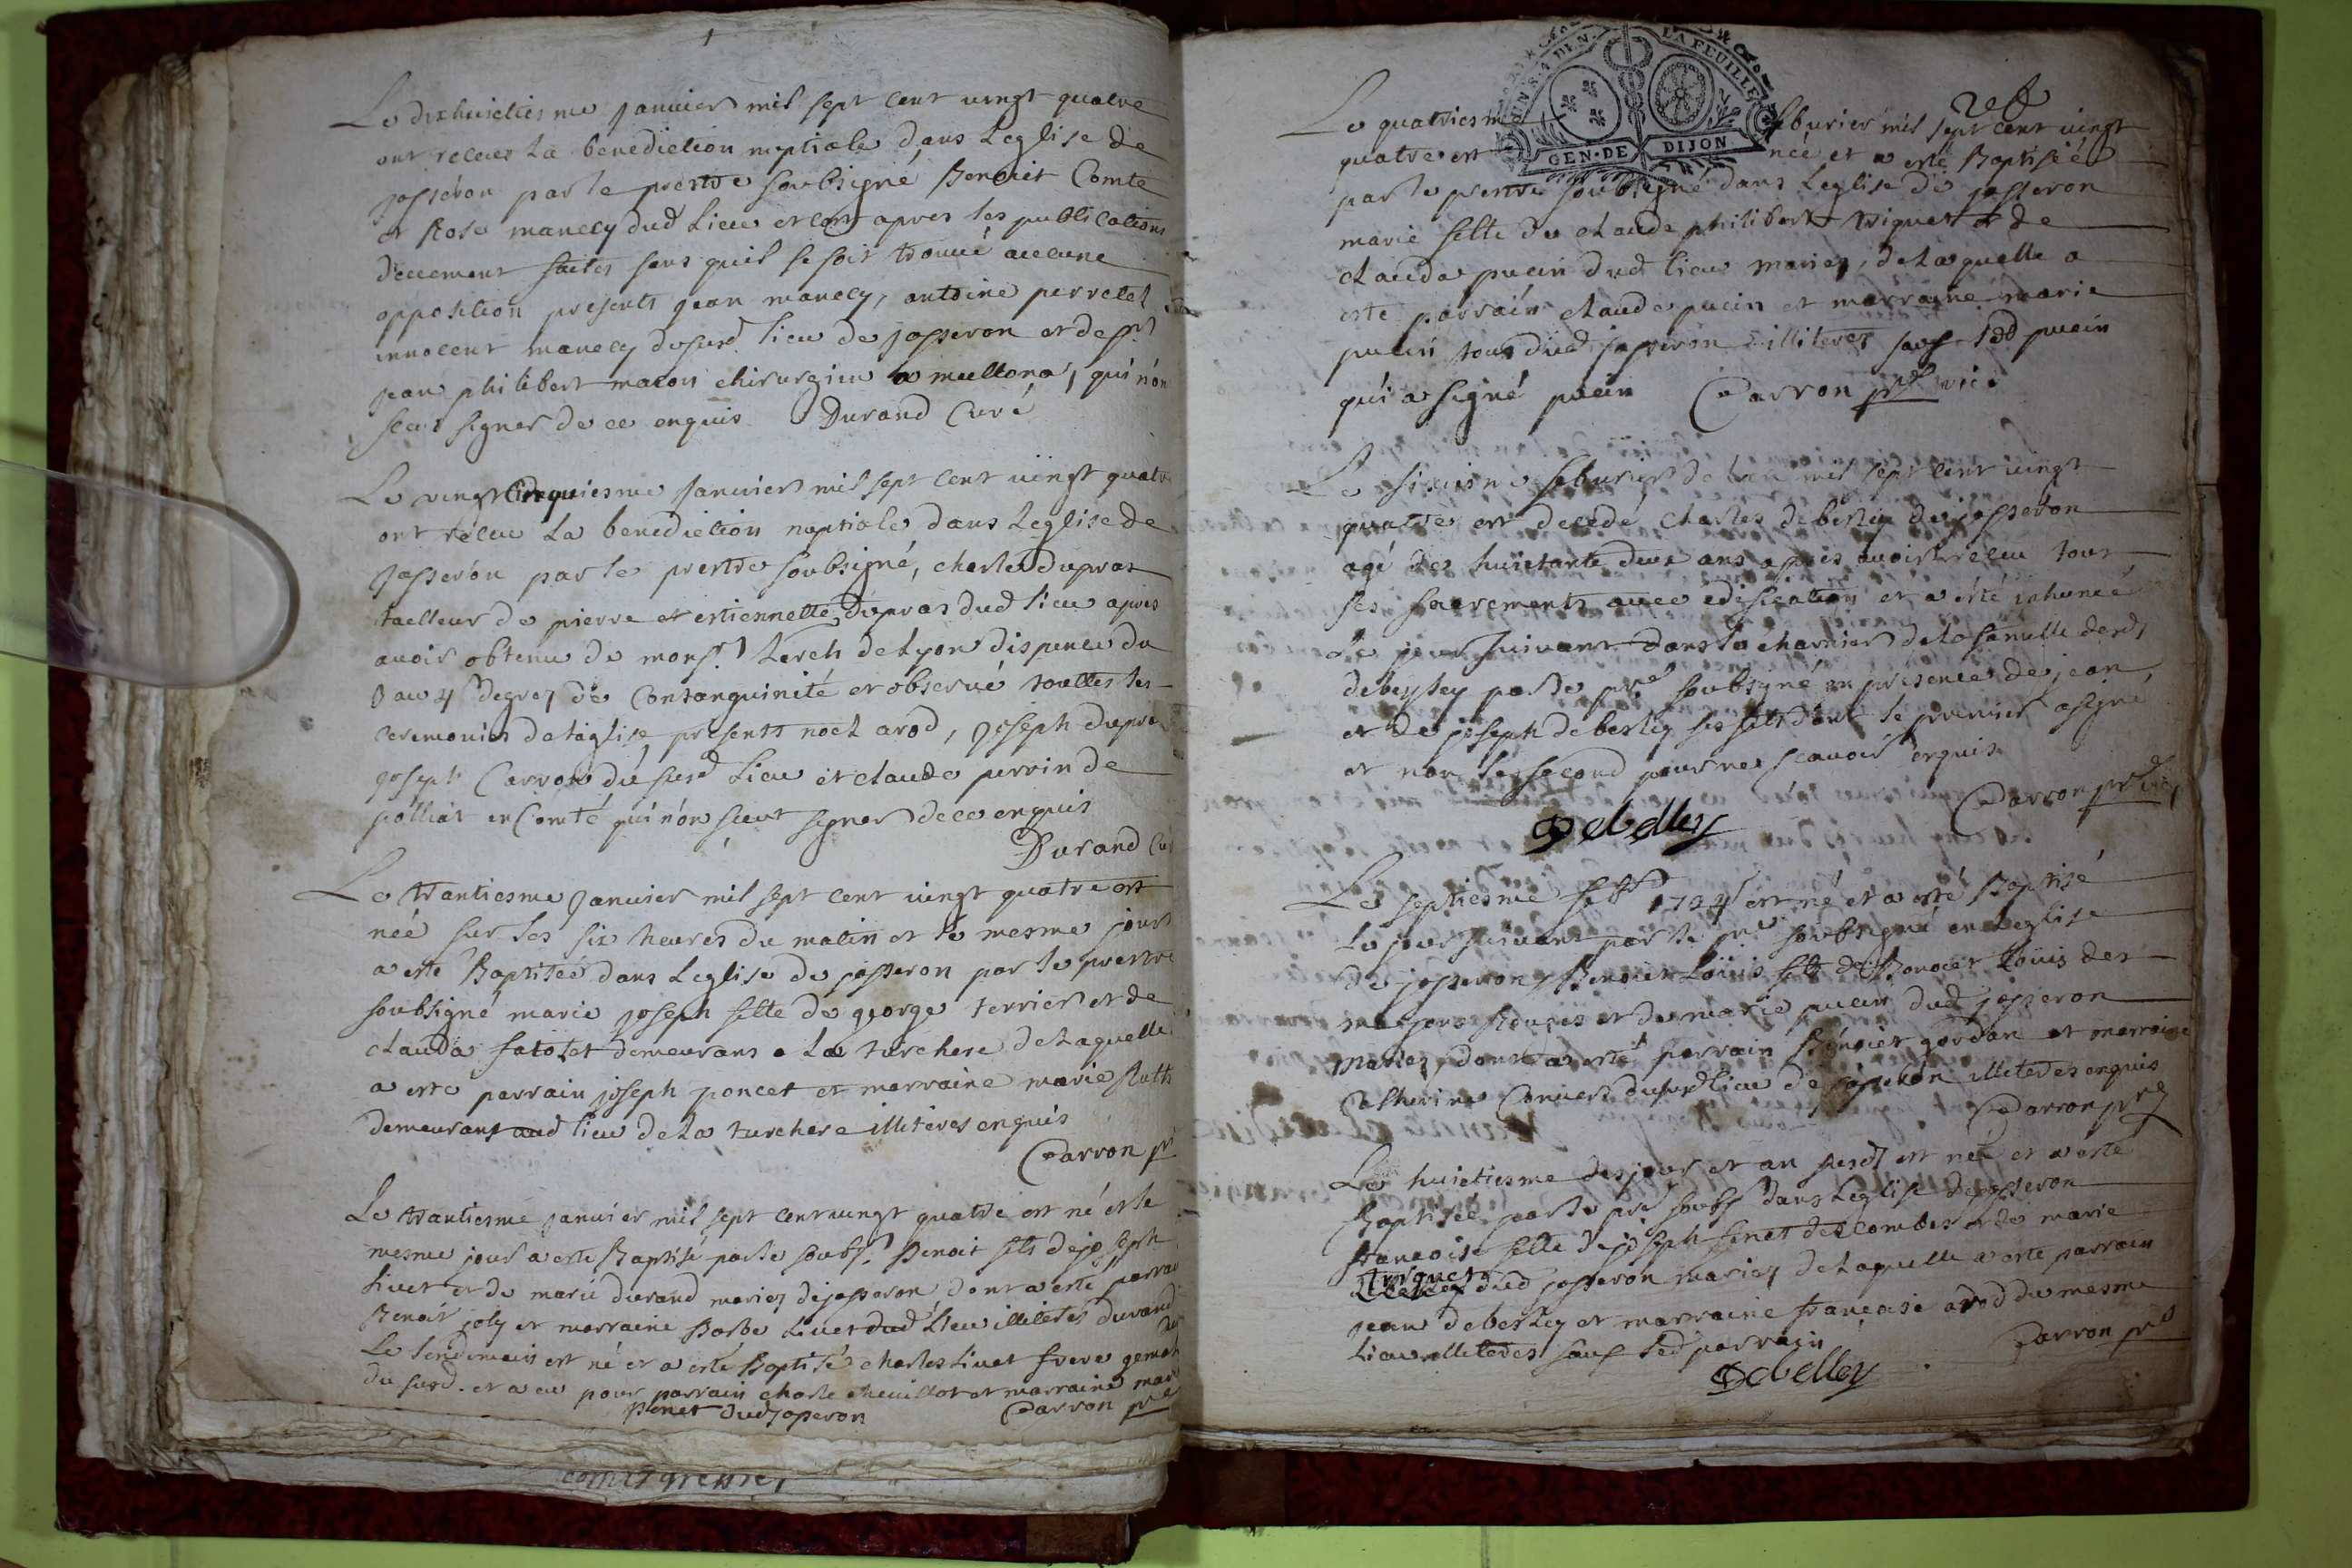 Le dixhuictiesme Januier mil sept cent uingt quatre
ont receu La benediction nuptiale dans Leglise de
josseron par le prestre soubsigné Benoist Comte
et Rose manecy dud Lieu et ce apres les publications
deuement faites sans quil se soit trouué aucune
opposition presents jean manecy, antoine perretet
innocent manecy du susd. lieu de josseron et de sr
jean philibert maron chirurgien a mellona, qui n'on
sceu signer de ce enquis Durand Curé
Le vingt cinquiesme Januier mil sept cent uingt quatre
ont receu La benediction nuptiale dans Leglise de
Josseron par le prestre soubsigné, charle dupras
tailleur de pierre et estiennette dupras dud lieu apres
auoir obtenu de monsr Larch de Lyon dispence du
3 au 4 degrez de consanguinité et obserué touttes les
ceremonies de Leglise presents noel arod, joseph dupra
joseph Carron du susd Lieu et claude perrin de
polliat en Comté qui n'on sceut signer de ce enquis
Durand Cur
Le trantiesme Januier mil sept cent uingt quatre est
née sur les six heures du matin et le mesme jour
a esté Baptisée dans Leglise de josseron par le prestre
soubsigné marie joseph fille de george terrier et de
clauda demeurans a La turchere de Laquelle
a esté parrain joseph poncet et marraine marie
demeurans aud lieu de La turchere illiterés enquis
Carron pr
Le trantiesme januier mil sept cent uingt quatre est né et le
mesme jour a esté Baptisé par le soubs. Benoit fils de joseph
liuet et de marie durand mariez de josseron dont a esté parrain
Benoit joly et marraine Barbe Liuet dud Lieu illiterés durand
Le lendemain est né et a esté Baptisé charles liuet frere
du susd. et a eu pour parrain charle cheuillot et marraine mar
penet dud josseron Carron pre
GEN. DE DIJON
LA FEUILLE
Le quatriesme feburier mil sept cent uingt
quatre est née et a esté Baptisée
par le prestre soubsigné dans Leglise de josseron
marie fille de claude philibert triquet et de
clauda puein dud lieu mariez, de Laquelle a
esté parrain claude puein et marraine marie
puein tous dud josseron illiterés sauf led puein
qui a signé puein Carron pre vic
Le sixiesme feburier de lan mil sept cent uingt
quattre est decedé charles debesley de josseron
agé de huictante deux ans apres auoir receu tous
ses sacrements auec edification et a esté inhumé
Le jour suiuant dans le charnier de la famille desds
debesley par le pre soubsigné en presence de jean
et de joseph debesley ses fils dont le premier a signé
et non le second pour ne scauoir enquis
Debelley Carron pre vic
Le septiesme feb 1724 est né et a esté Baptisé
Le jour suiuant par le pre soubsigné en Leglise
de josseron Benoist Loüis fils de Benoist Loüis des
maisons rouges et de marie puein dud josseron
mariez, dont a esté parrain Benoist gordan et marraine
Catherine Conuert du susd lieu de josseron illiterés enquis
Carron pre
Le huictiesme des jour et an susd est née et a esté
Baptisée par le pre soubs dans Leglise de josseron
francoise fille de joseph senet des combes et de marie
triquet dud josseron mariez de Laquelle a esté parrain
jean debesley et marraine francoise arod du mesme
Lieu illiterés sauf led parrain Carron pre
Debelley